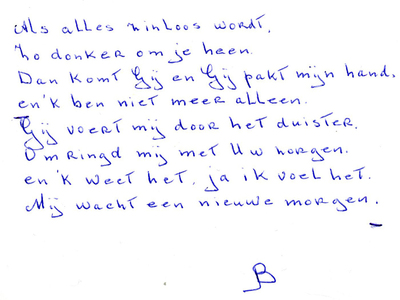 Als alles zinloos wordt,
zo donker om je heen.
Dan komt Gij en Gij pakt mijn hand,
en 'k ben niet meer alleen.
Gij voert mij door het duister,
Omringd mij met Uw zorgen.
en 'k weet het, ja ik voel het.
Mij wacht een nieuwe morgen.
B